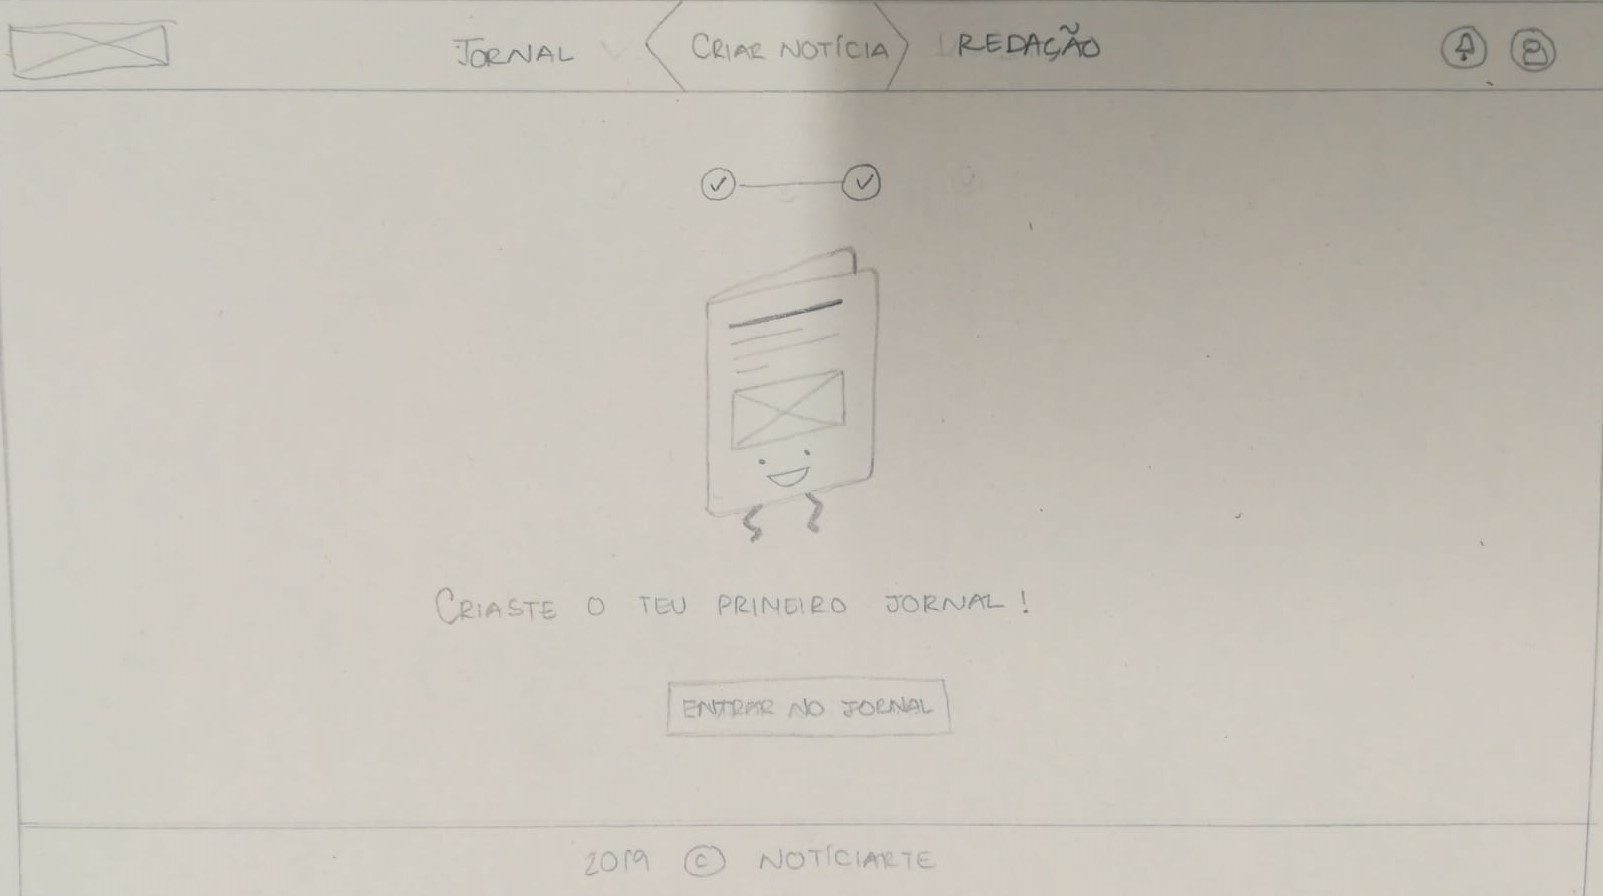 JORNAL CRIAR NOTÍCIA REDAÇÃO
CRIASTE O TEU PRIMEIRO JORNAL!
ENTRAR NO JORNAL
2019 © NOTÍCIARTE